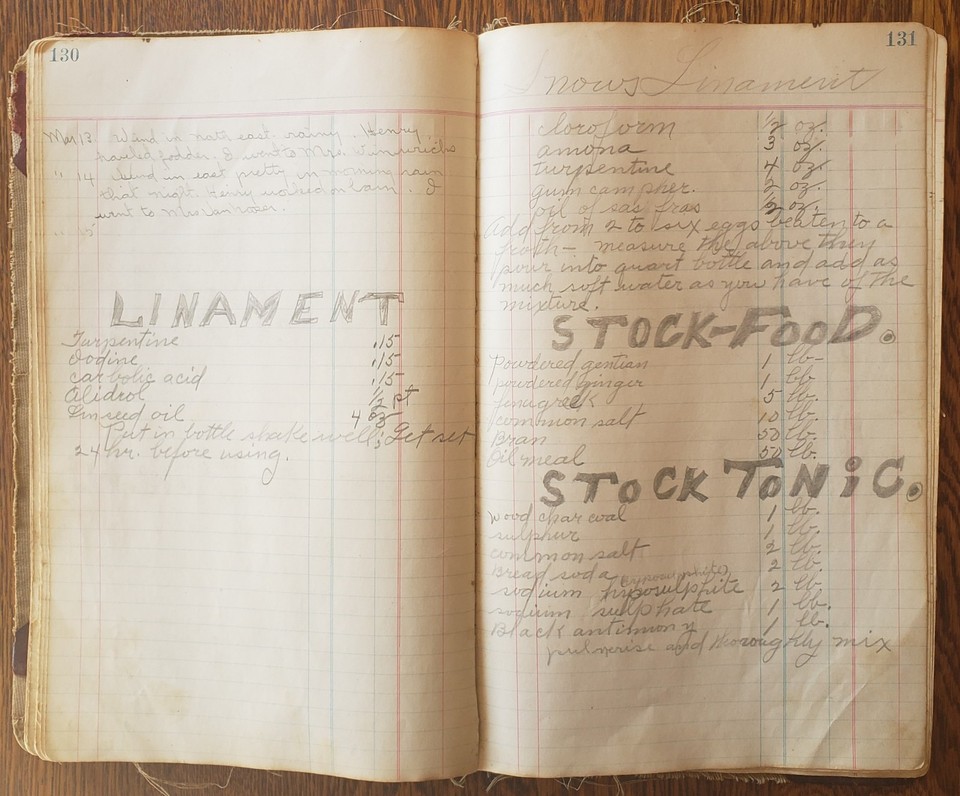 130
Mar 13. Wind in north east. rainy. Henry
hauled fodder. I went to Mrs.
" 14 Wind in east pretty in morning rain
that night. Henry worked on barn. I
went to Mrs Vanhozer.
" 15
LINAMENT
Turpentine .15
Iodine .15
Carbolic acid .15
1/2 pt
Linseed oil 4 oz
Put in bottle shake well, Let set
24 hr. before using.
131
Snows Linament
cloroform 1/2 oz.
amona 3 oz.
turpentine 4 oz.
gum campher. 1/2 oz.
oil of sas fras 1/2 oz.
Add from 2 to six eggs beaten to a
froth - measure the above they
pour into quart bottle and add as
much soft water as you have of the
mixture.
STOCK-FOOD.
Powdered gentian 1 lb-
powdered ginger 1 lb.
fenugreek 5 lb.
common salt 10 lb.
Bran 50 lb.
Oil meal 50 lb.
STOCK TONIC.
Wood char coal 1 lb.
sulphur 1 lb.
common salt 2 lb.
Bread soda 2 lb.
sodium hyposulphite 2 lb.
sodium sulphate 1 lb.
Black antimony 1 lb.
pulverise and thoroughly mix